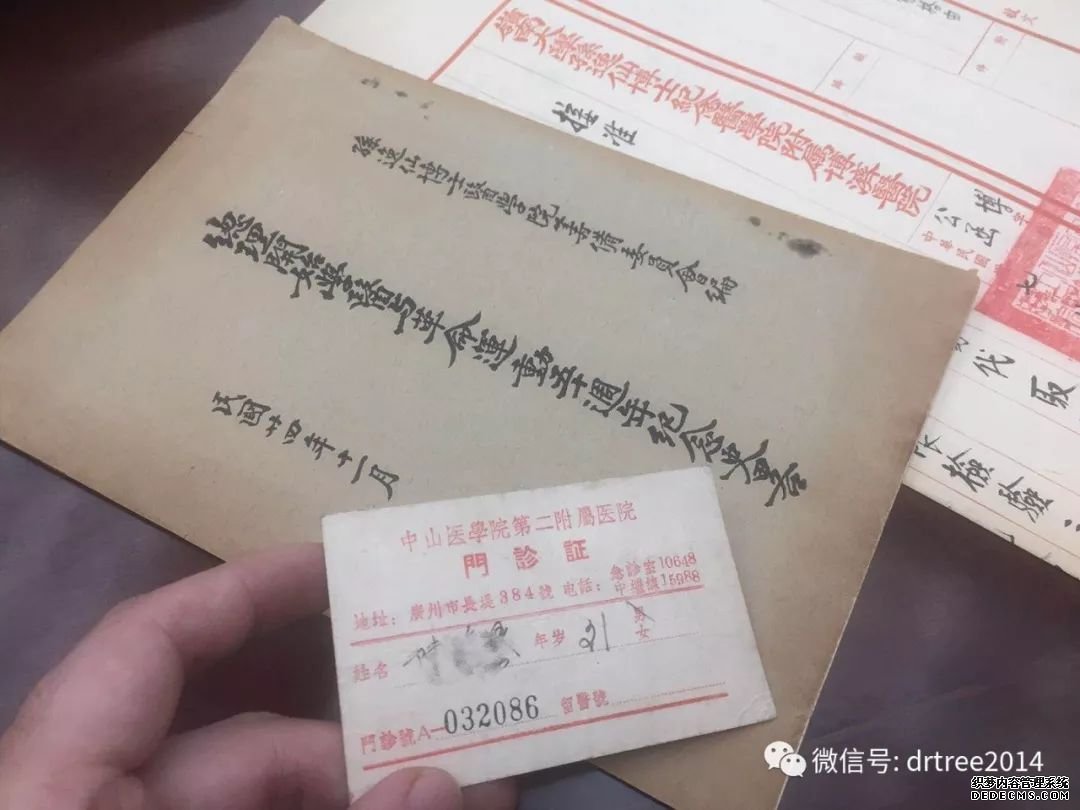 孫逸仙博士醫學院籌備委員會編
總理開始學醫與革命運動五十週年紀念史畧
民國廿四年十一月
嶺南大學孫逸仙博士紀念醫學院附屬博濟醫院
接准
公函
博
年
中華民國
七
代取
檢驗
收文
中山医學院第二附屬医院
門診証
地址：廣州市長堤384號 电話：急診室10648
中继線15988
姓名
年岁 21 男
女
門診號A-032086 留醫號
微信号: drtree2014
织梦内容管理系统
DEDECMS.COM